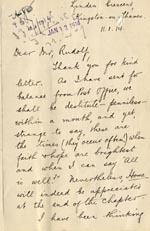 Linden Crescent,
Kingston-on-Thames.
11.1.14.
JAN 13 1914
Dear Mr. Rudolf
Thank you for kind
letter. As I have sent for
balance from Post Office, we
shall be destitute - penniless -
within a month, and yet,
strange to say, these are
the times (they occur often) when
faith & hope are brightest
and when I can say "All
is well". Nevertheless, Home
will indeed be appreciated
at the end of the chapter.
I have been thinking